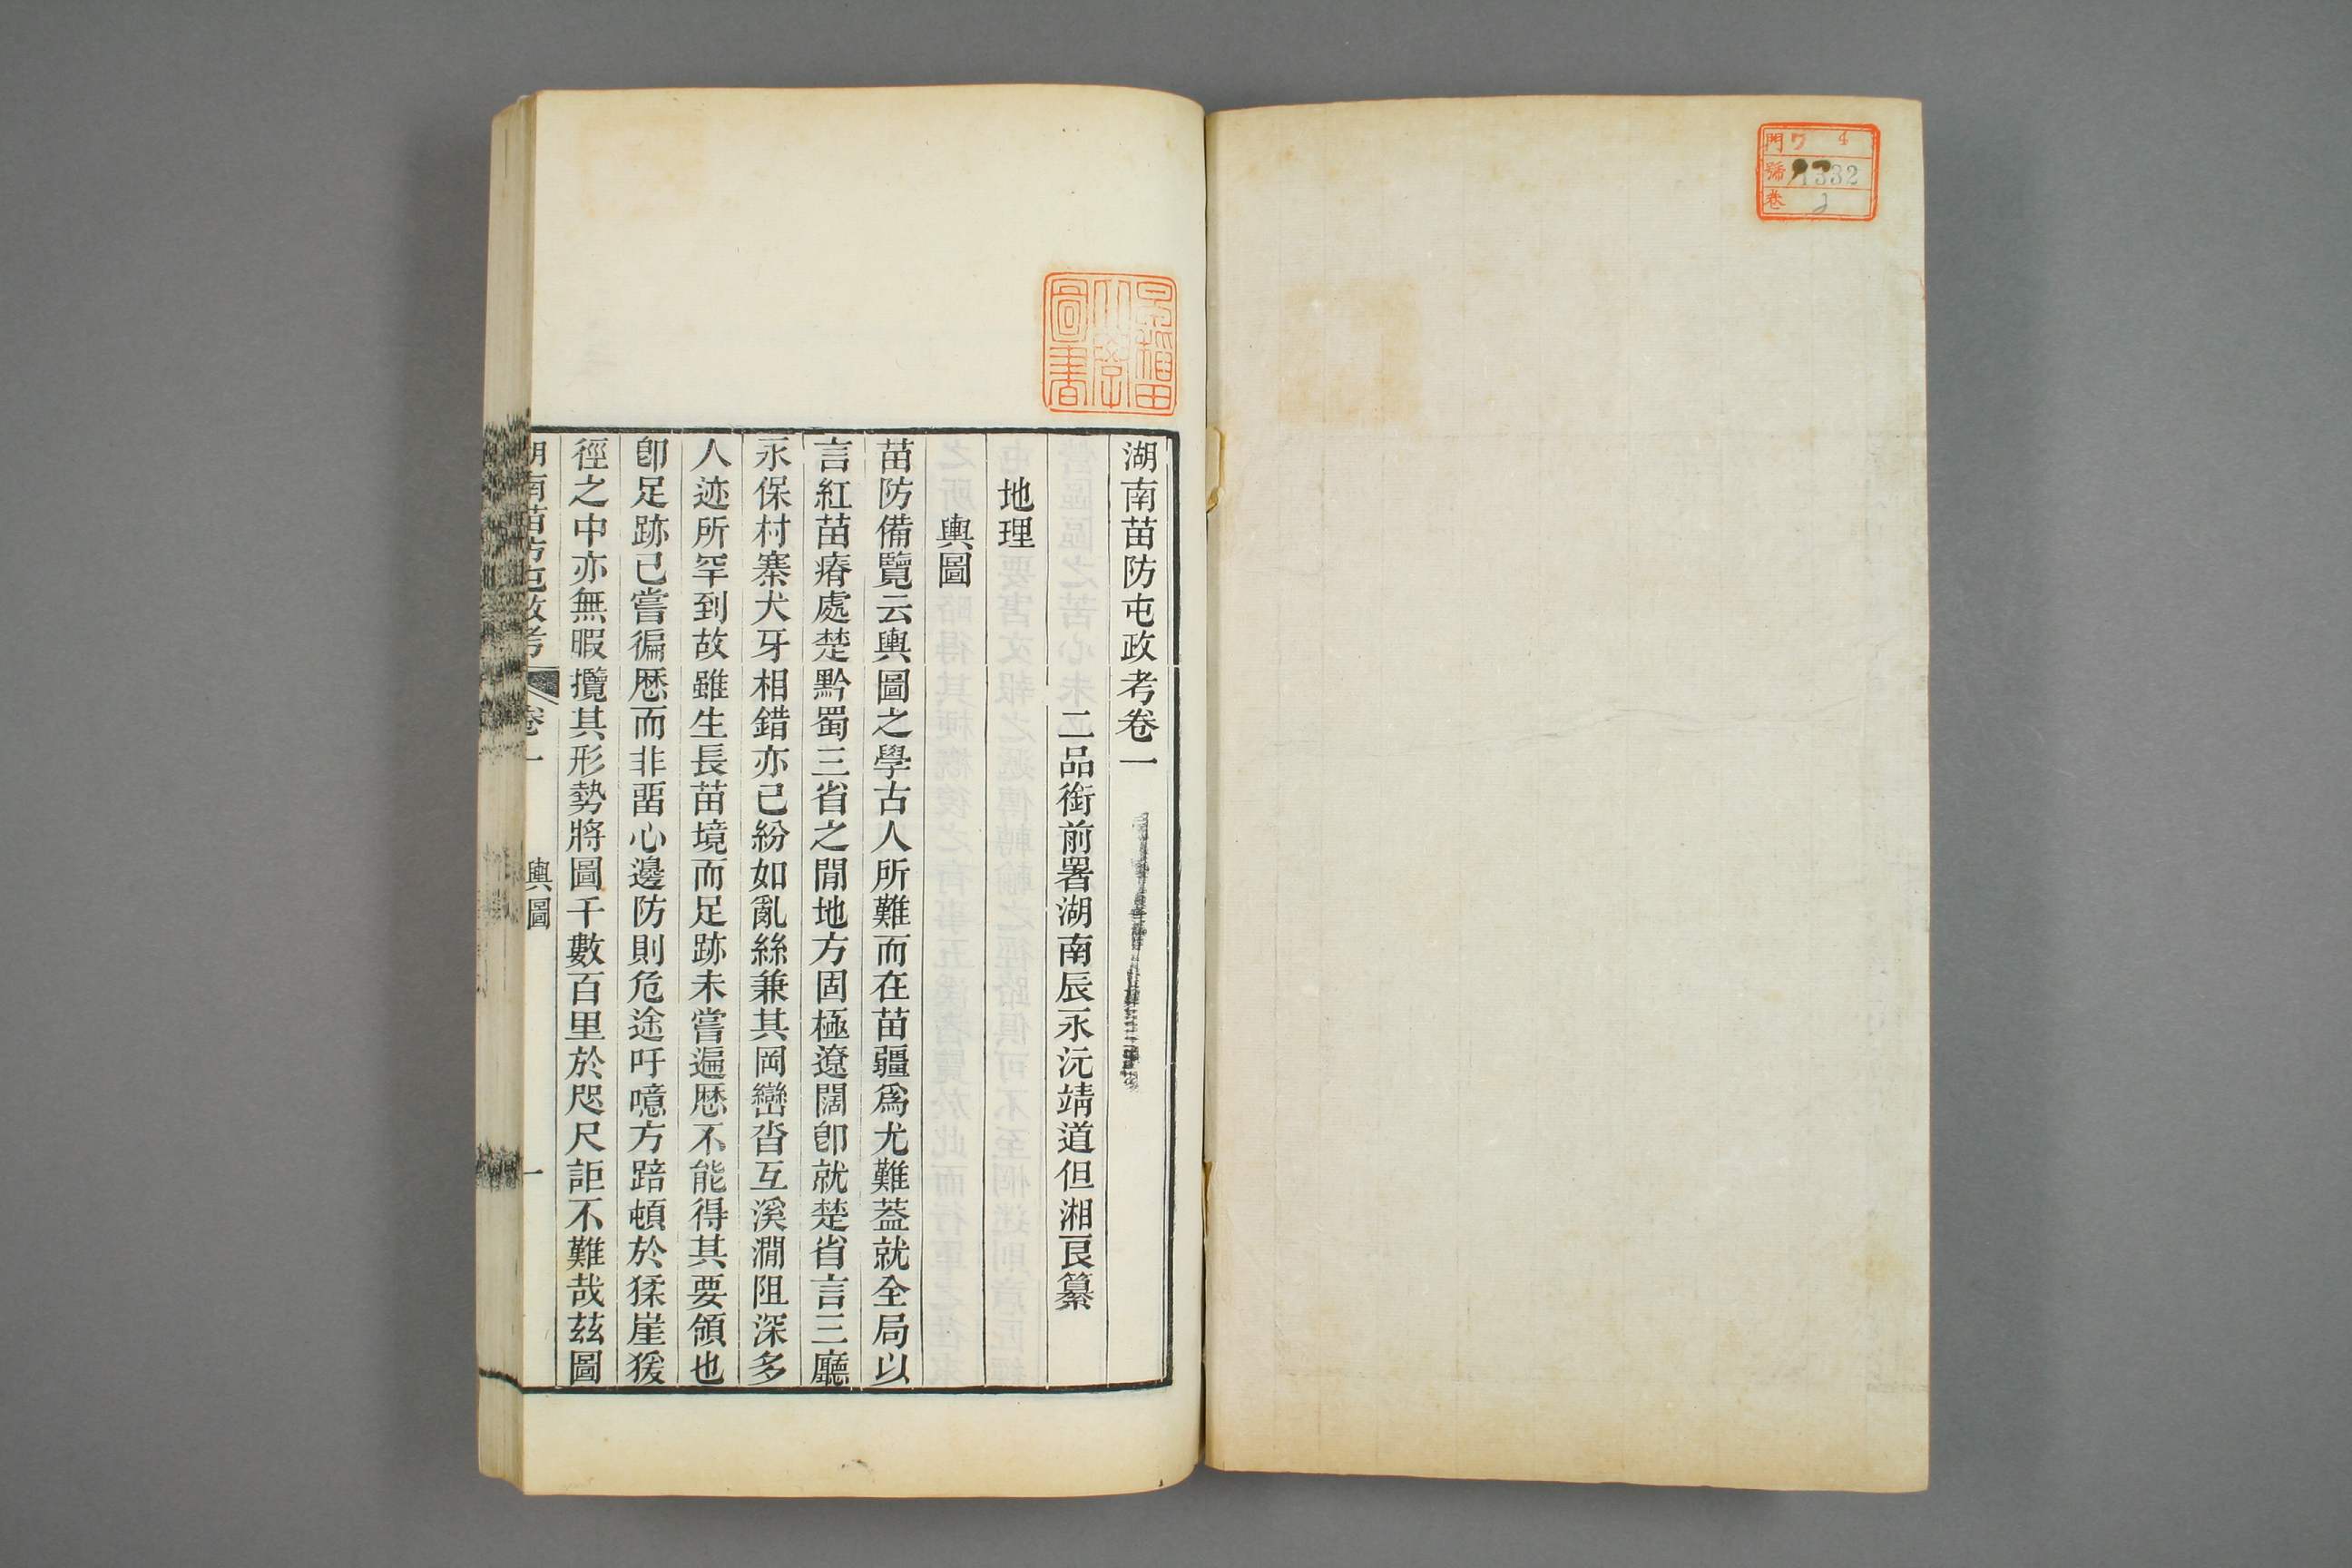 門 ワ 4
號 1332
卷 2
早稲田
大學
圖書
湖南苗防屯政考卷一
二品銜前署湖南辰永沅靖道但湘良纂
地理
輿圖
苗防備覽云輿圖之學古人所難而在苗疆爲尤難葢就全局以
言紅苗瘠處楚黔蜀三省之閒地方固極遼闊卽就楚省言三廳
永保村寨犬牙相錯亦已紛如亂絲兼其岡巒沓互溪澗阻深多
人迹所罕到故雖生長苗境而足跡未嘗遍歷不能得其要領也
卽足跡已嘗徧歷而非畱心邊防則危途吁噫方踣頓於猱崖猨
徑之中亦無暇攬其形勢將圖千數百里於咫尺詎不難哉茲圖
湖南苗防屯政考 卷一 輿圖 一